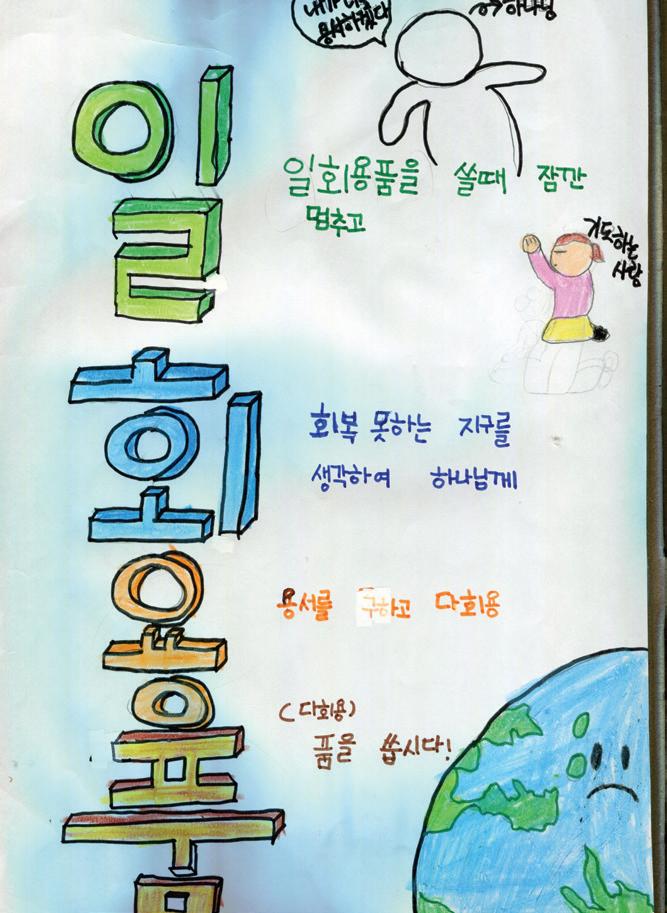 내가 너를
용서하겠다
하나님
일회용품
일회용품을 쓸때 잠깐
멈추고
기도하는
사람
회복 못하는 지구를
생각하여 하나님께
용서를 구하고 다회용
(다회용)
품을 씁시다!